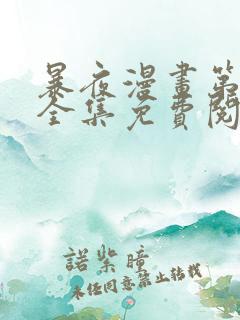 暴夜漫畫第
全集免費閱
諾紫瞳
未经同意禁止转载